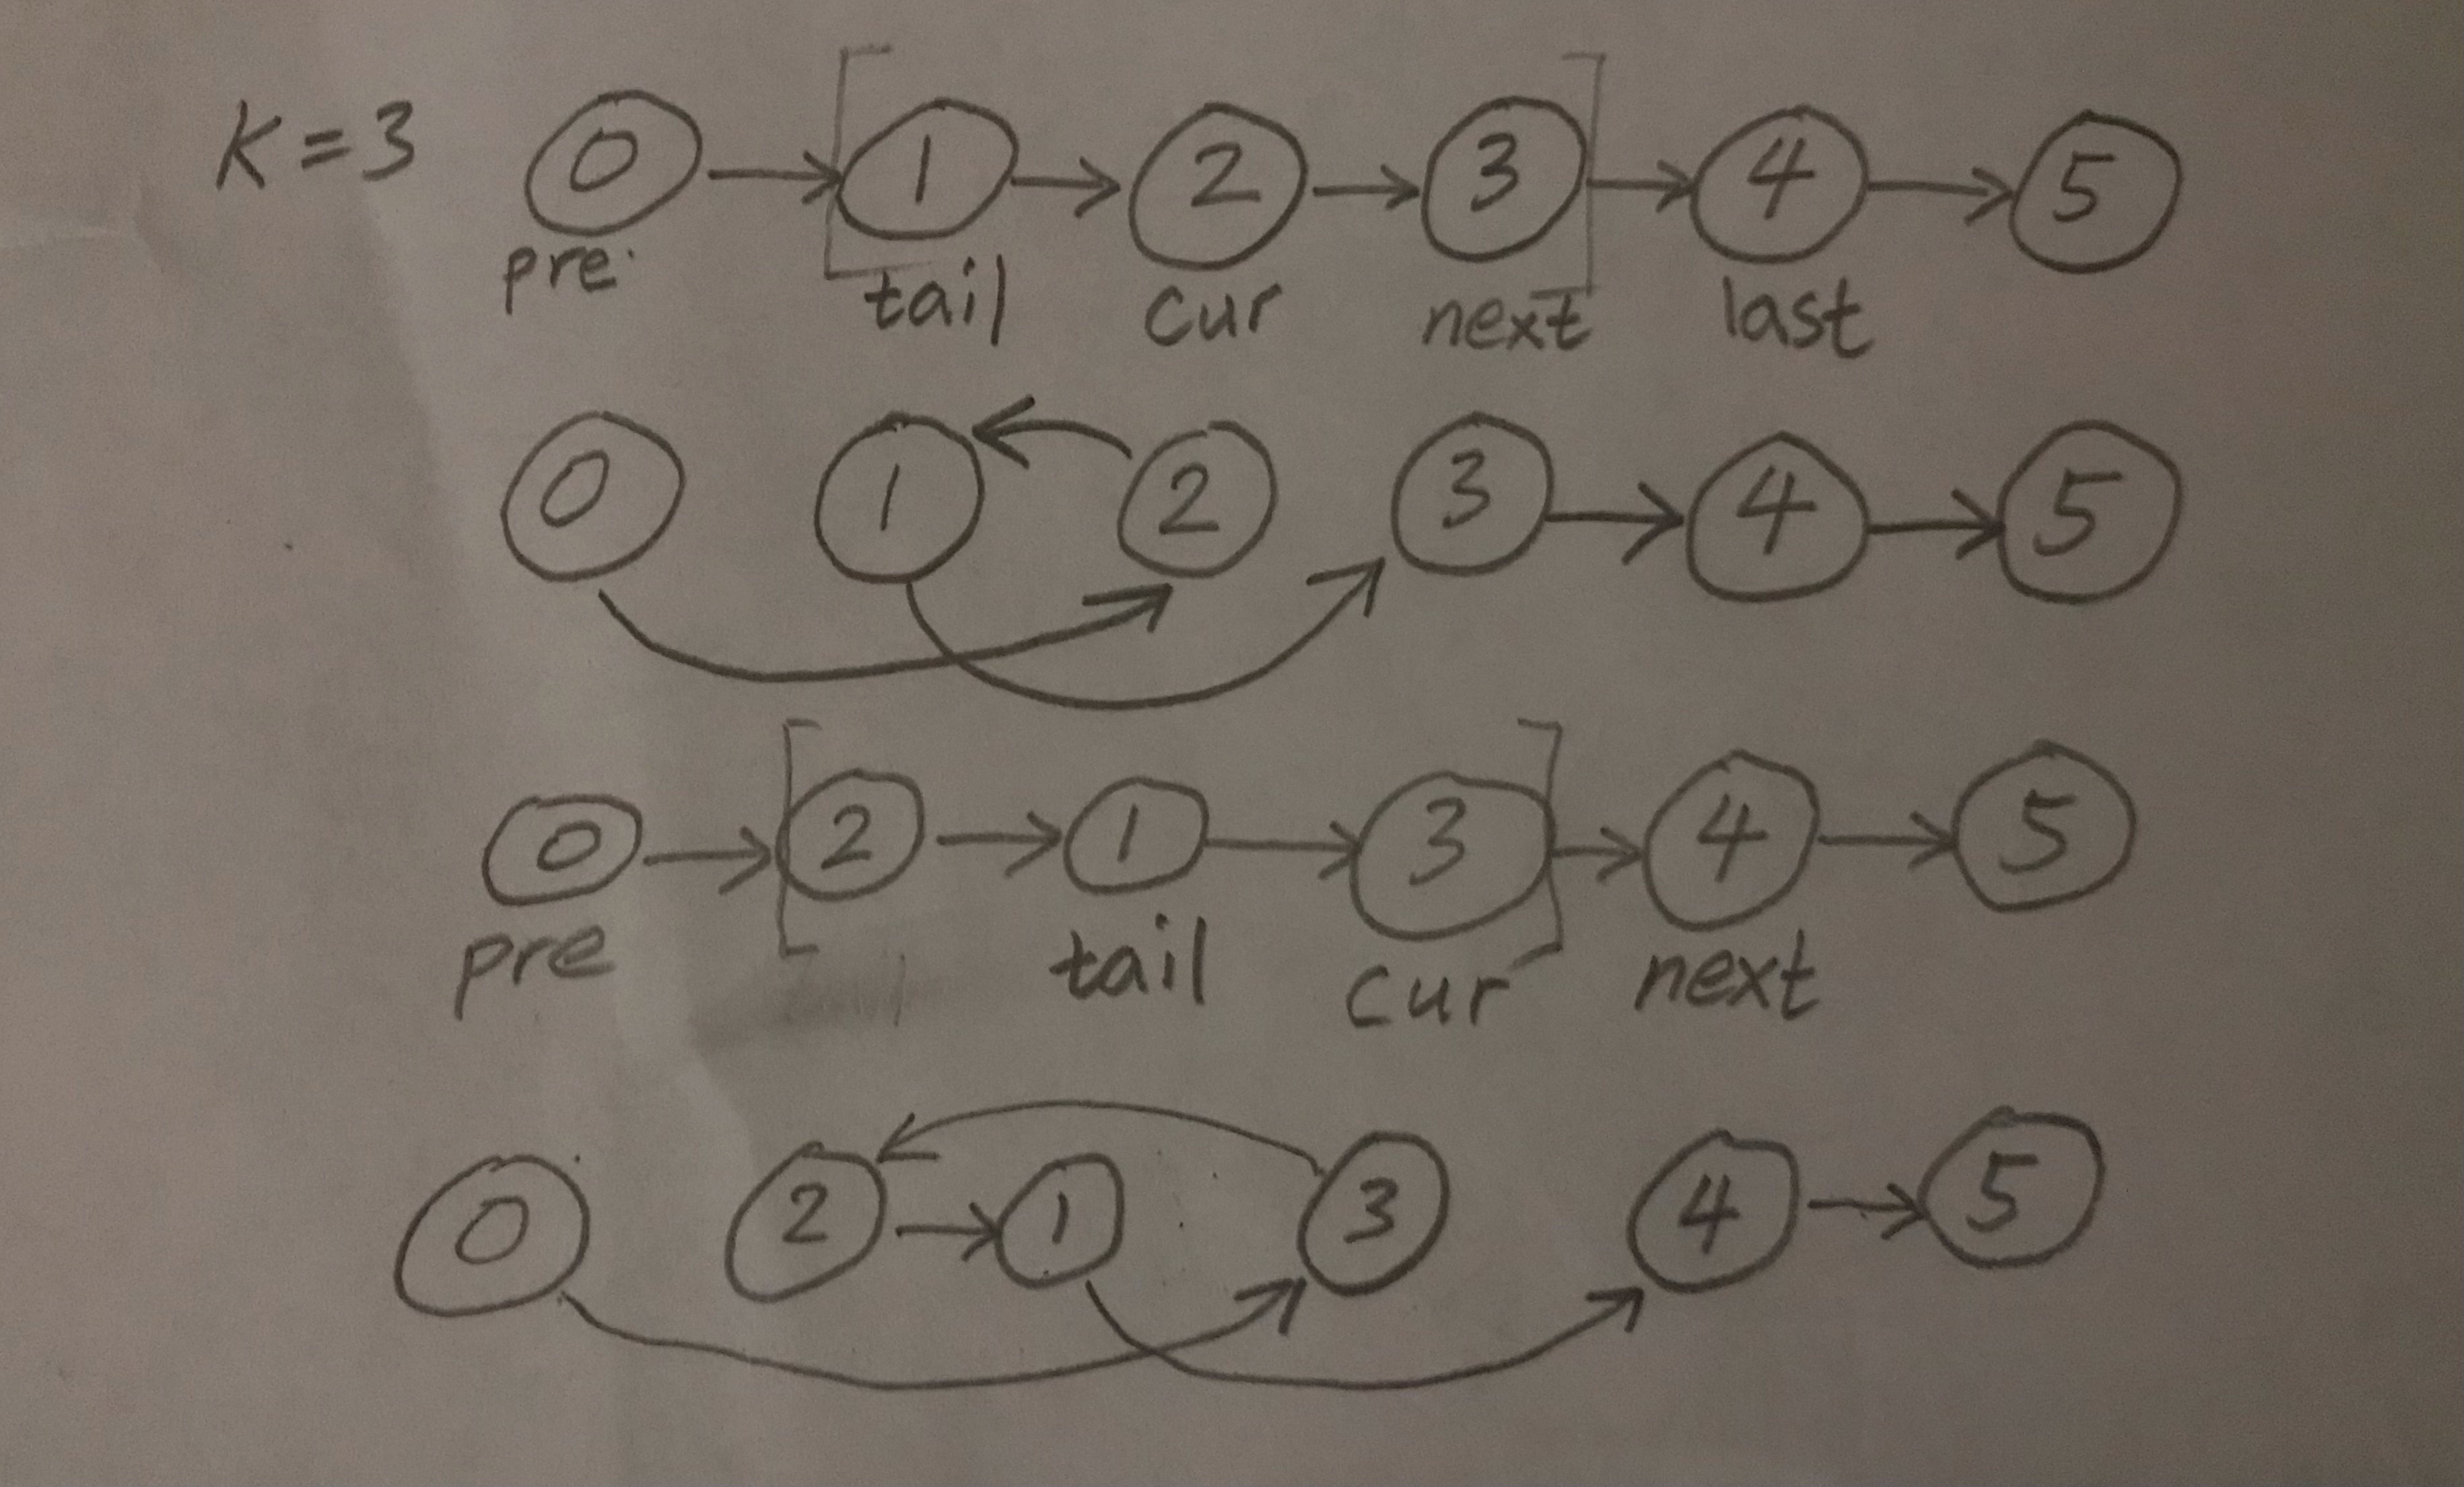 K=3 0 1 2 3 4 5
pre tail cur next last
0 1 2 3 4 5
0 2 1 3 4 5
pre tail cur next
0 2 1 3 4 5